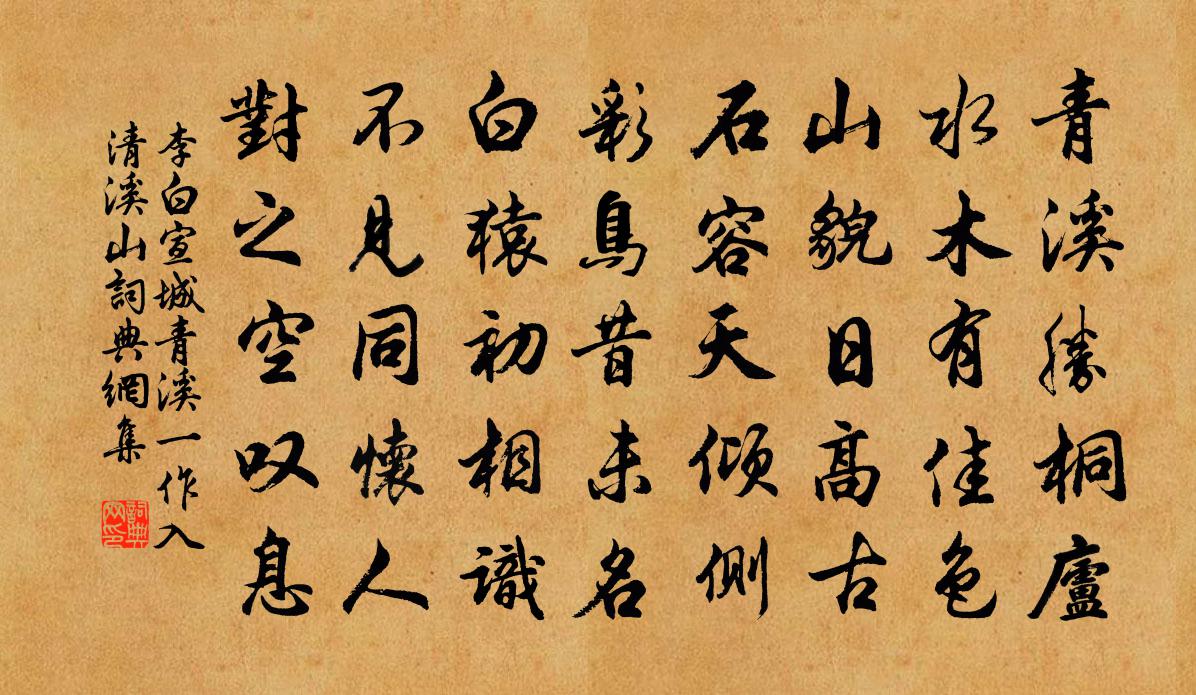 青溪勝桐廬
水木有佳色
山貌日高古
石容天傾側
彩鳥昔未名
白猿初相識
不見同懷人
對之空叹息
李白宣城青溪一作入
清溪山詞典網集
詞典
网印